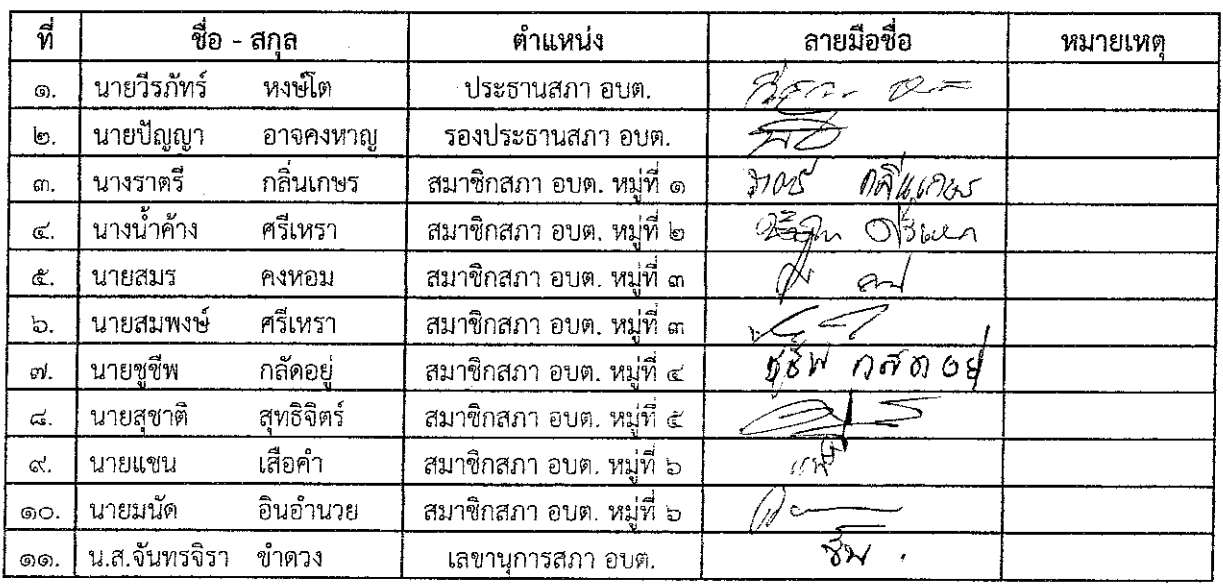 ที่ ชื่อ - สกุล ตำแหน่ง ลายมือชื่อ หมายเหตุ
๑. นายวีรภัทร์ หงษ์โต ประธานสภา อบต.
๒. นายปัญญา อาจคงหาญ รองประธานสภา อบต.
๓. นางราตรี กลิ่นเกษร สมาชิกสภา อบต. หมู่ที่ ๑ ราตรี กลิ่นเกษร
๔. นางน้ำค้าง ศรีเหรา สมาชิกสภา อบต. หมู่ที่ ๒
๕. นายสมร คงหอม สมาชิกสภา อบต. หมู่ที่ ๓
๖. นายสมพงษ์ ศรีเหรา สมาชิกสภา อบต. หมู่ที่ ๓
๗. นายชูชีพ กลัดอยู่ สมาชิกสภา อบต. หมู่ที่ ๔ ชูชีพ กลัดอยู่
๘. นายสุชาติ สุทธิจิตร์ สมาชิกสภา อบต. หมู่ที่ ๕
๙. นายแชน เสือคำ สมาชิกสภา อบต. หมู่ที่ ๖
๑๐. นายมนัด อินอำนวย สมาชิกสภา อบต. หมู่ที่ ๖
๑๑. น.ส.จันทรจิรา ขำดวง เลขานุการสภา อบต.